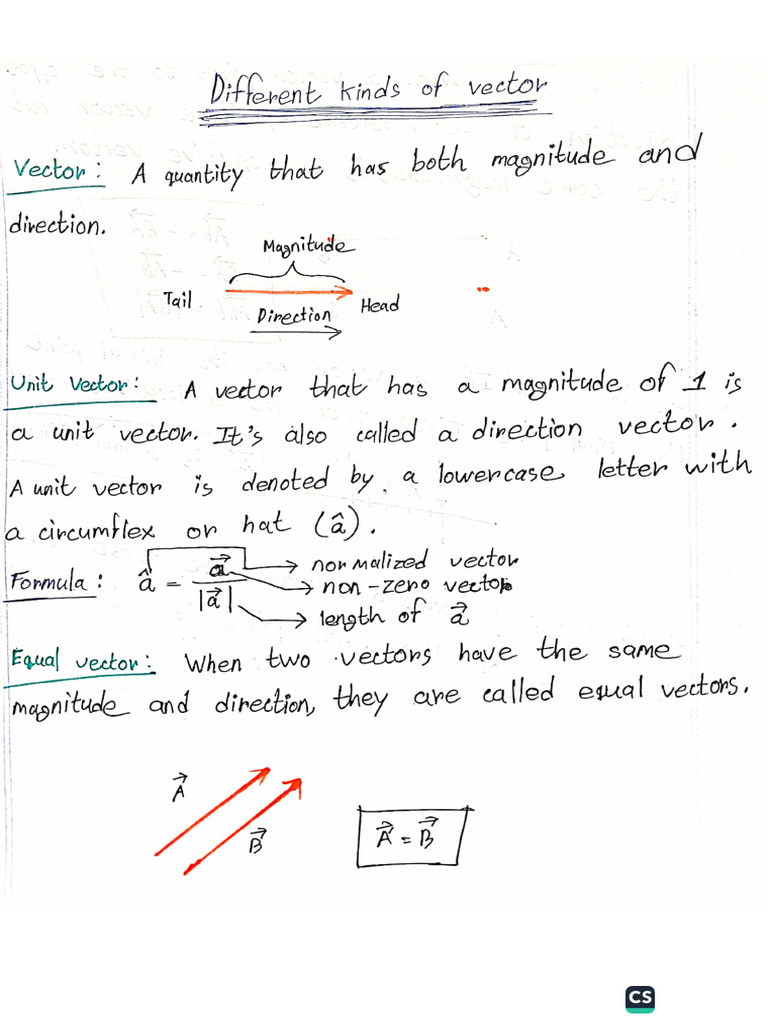 Different kinds of vector
Vector: A quantity that has both magnitude and
direction.
Magnitude
Tail
Head
Direction
Unit Vector: A vector that has a magnitude of 1 is
a unit vector. It's also called a direction vector.
A unit vector is denoted by a lowercase letter with
a circumflex or hat (â).
Formula: â = a⃗ / |a⃗|
normalized vector
non-zero vector
length of a⃗
Equal vector: When two vectors have the same
magnitude and direction, they are called equal vectors.
A⃗
B⃗
A⃗ = B⃗
CS